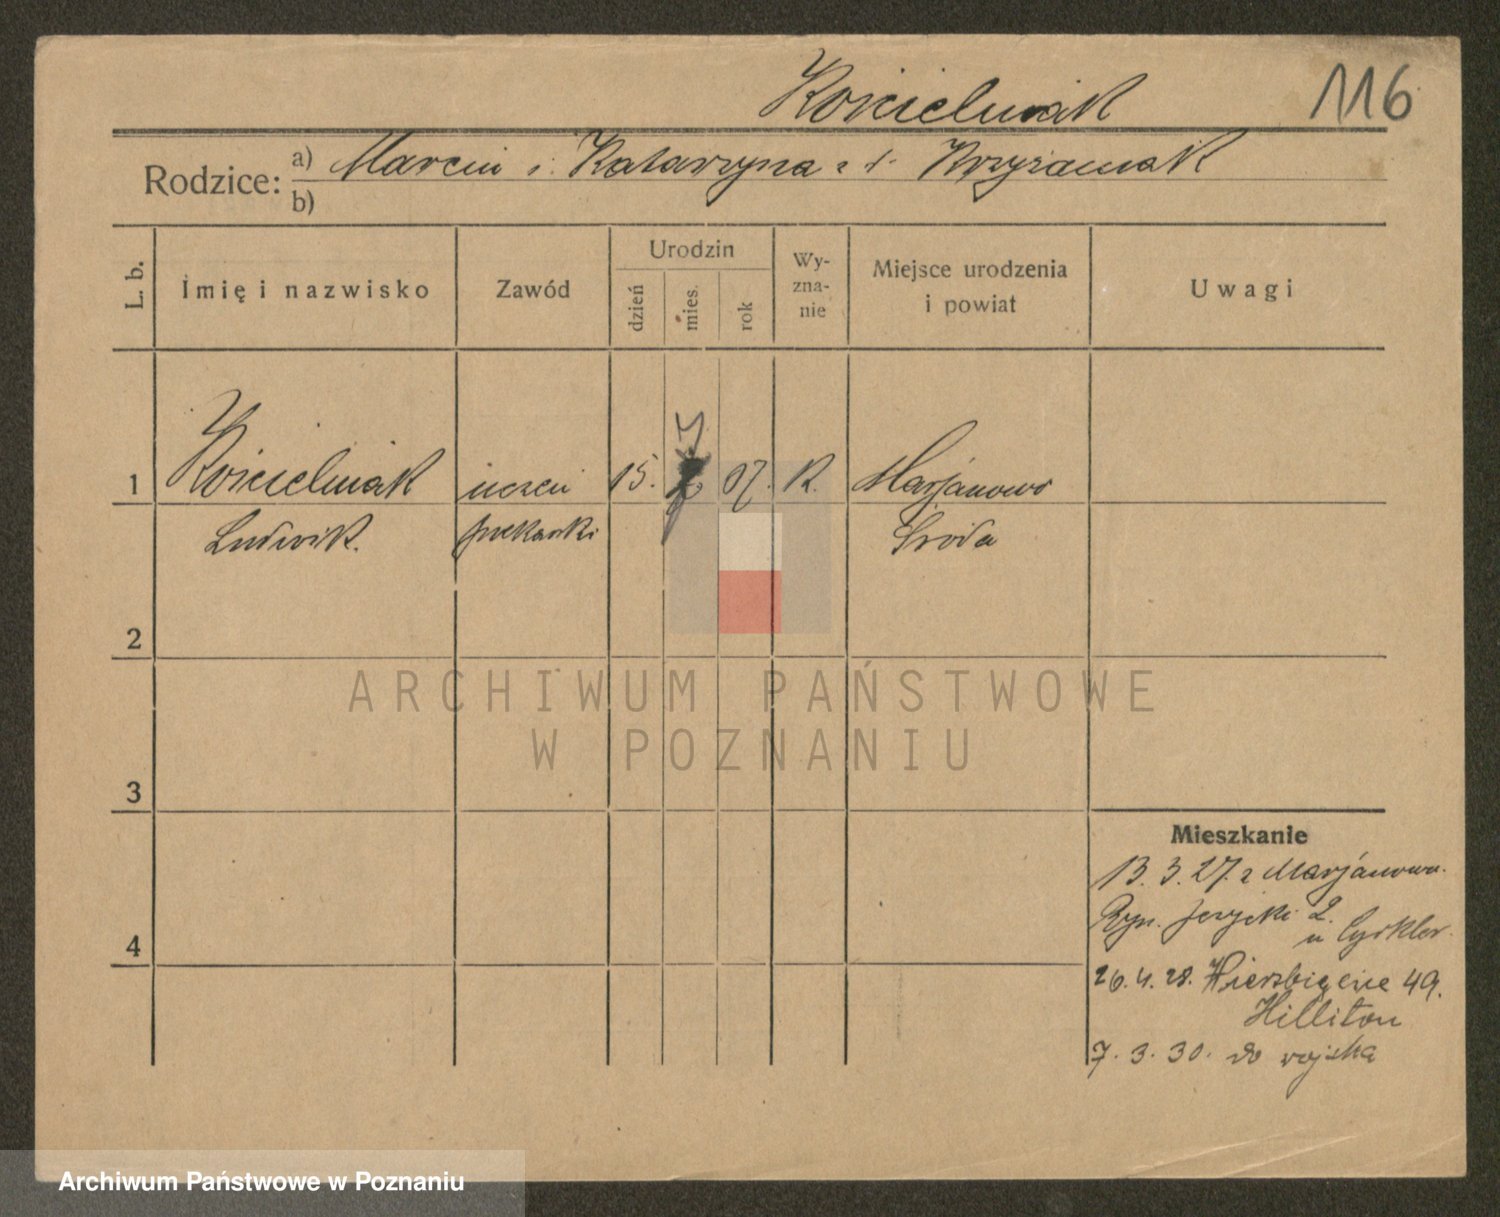 Kościelniak
116
Rodzice:
a) Marcin i Katarzyna z d. Krzyżaniak
b)
L. b.
Imię i nazwisko
Zawód
Urodzin
dzień
mies.
rok
Wy-
zna-
nie
Miejsce urodzenia
i powiat
Uwagi
1 Kościelniak uczeń 15. 07. K. Marjanowo
Ludwik. piekarski Środa
2
3
4
Mieszkanie
13. 3. 27. z Marjanowa.
Ryn. Jeżycki 2.
u Cyrkler.
26. 4. 28. Wierzbięcice 49.
Hilliton
7. 3. 30. do wojska
ARCHIWUM PAŃSTWOWE
W POZNANIU
Archiwum Państwowe w Poznaniu